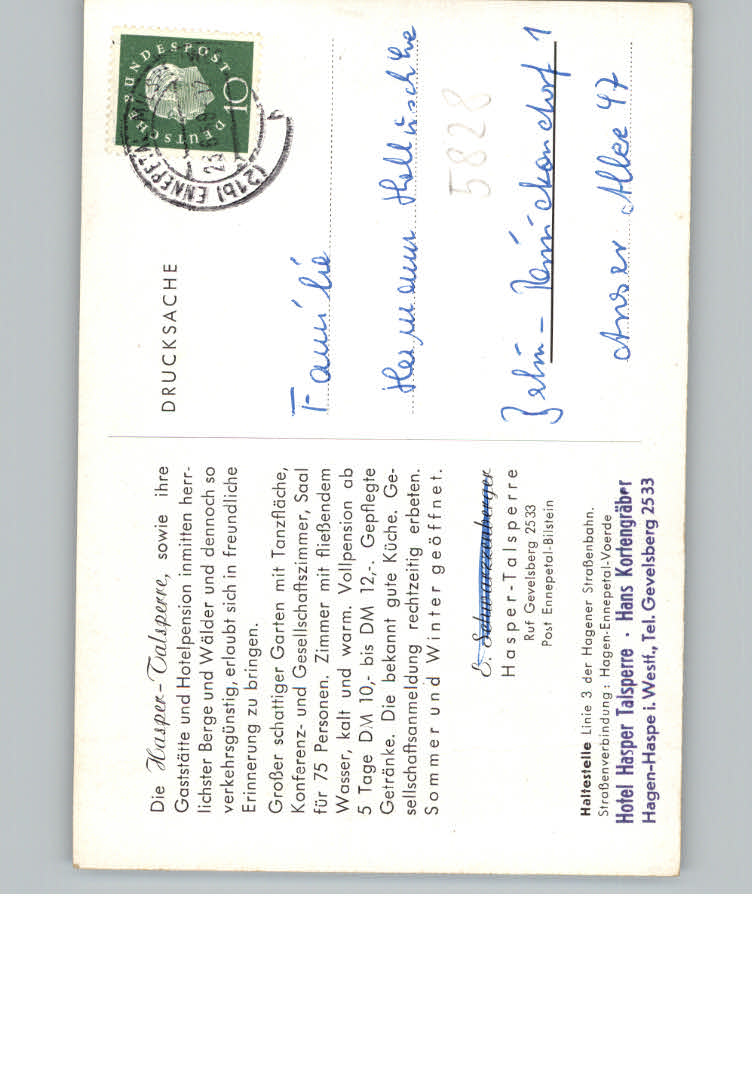 Die Hasper-Talsperre, sowie ihre
Gaststätte und Hotelpension inmitten herr-
lichster Berge und Wälder und dennoch so
verkehrsgünstig, erlaubt sich in freundliche
Erinnerung zu bringen.
Großer schattiger Garten mit Tanzfläche,
Konferenz- und Gesellschaftszimmer, Saal
für 75 Personen. Zimmer mit fließendem
Wasser, kalt und warm. Vollpension ab
5 Tage DM 10,- bis DM 12,-. Gepflegte
Getränke. Die bekannt gute Küche. Ge-
sellschaftsanmeldung rechtzeitig erbeten.
Sommer und Winter geöffnet.
E. Schwarzenberger
Hasper-Talsperre
Ruf Gevelsberg 2533
Post Ennepetal-Bilstein
Haltestelle Linie 3 der Hagener Straßenbahn.
Straßenverbindung: Hagen-Ennepetal-Voerde
Hotel Hasper Talsperre · Hans Kortengräber
Hagen-Haspe i. Westf., Tel. Gevelsberg 2533
DRUCKSACHE
DEUTSCHE BUNDESPOST
10
(21b) ENNEPETAL
b
Familie
Hermann
5828
1
Allee 47